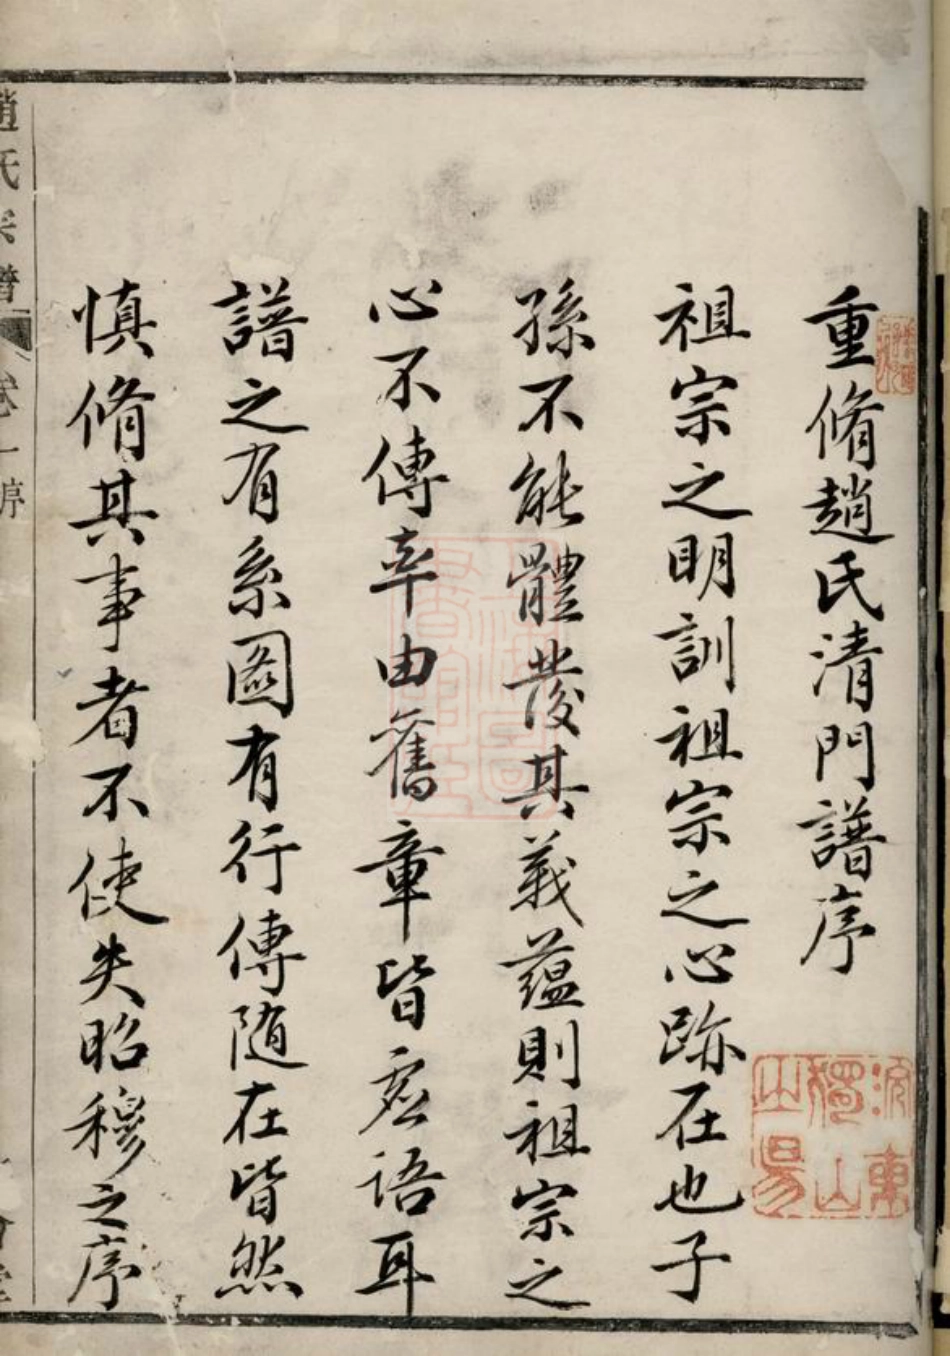 重脩趙氏清門譜序
祖宗之明訓祖宗之心跡在也子
孫不能體發其義蘊則祖宗之
心不傳率由舊章皆虛語耳
譜之有系圖有行傳隨在皆然
慎脩其事者不使失昭穆之序
趙氏宗譜 卷一序